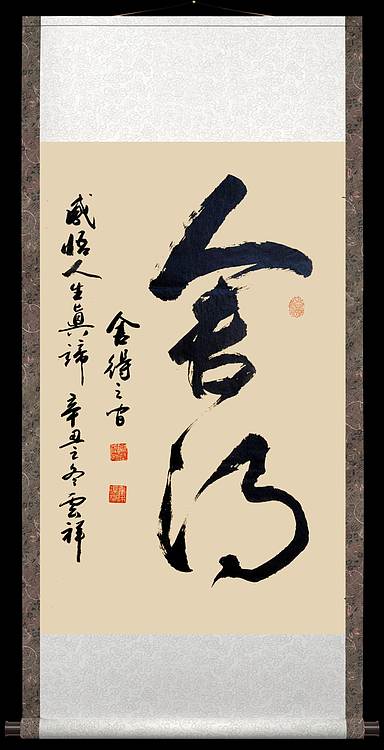 舍得
舍得之间
感悟人生真谛 辛丑之冬云祥